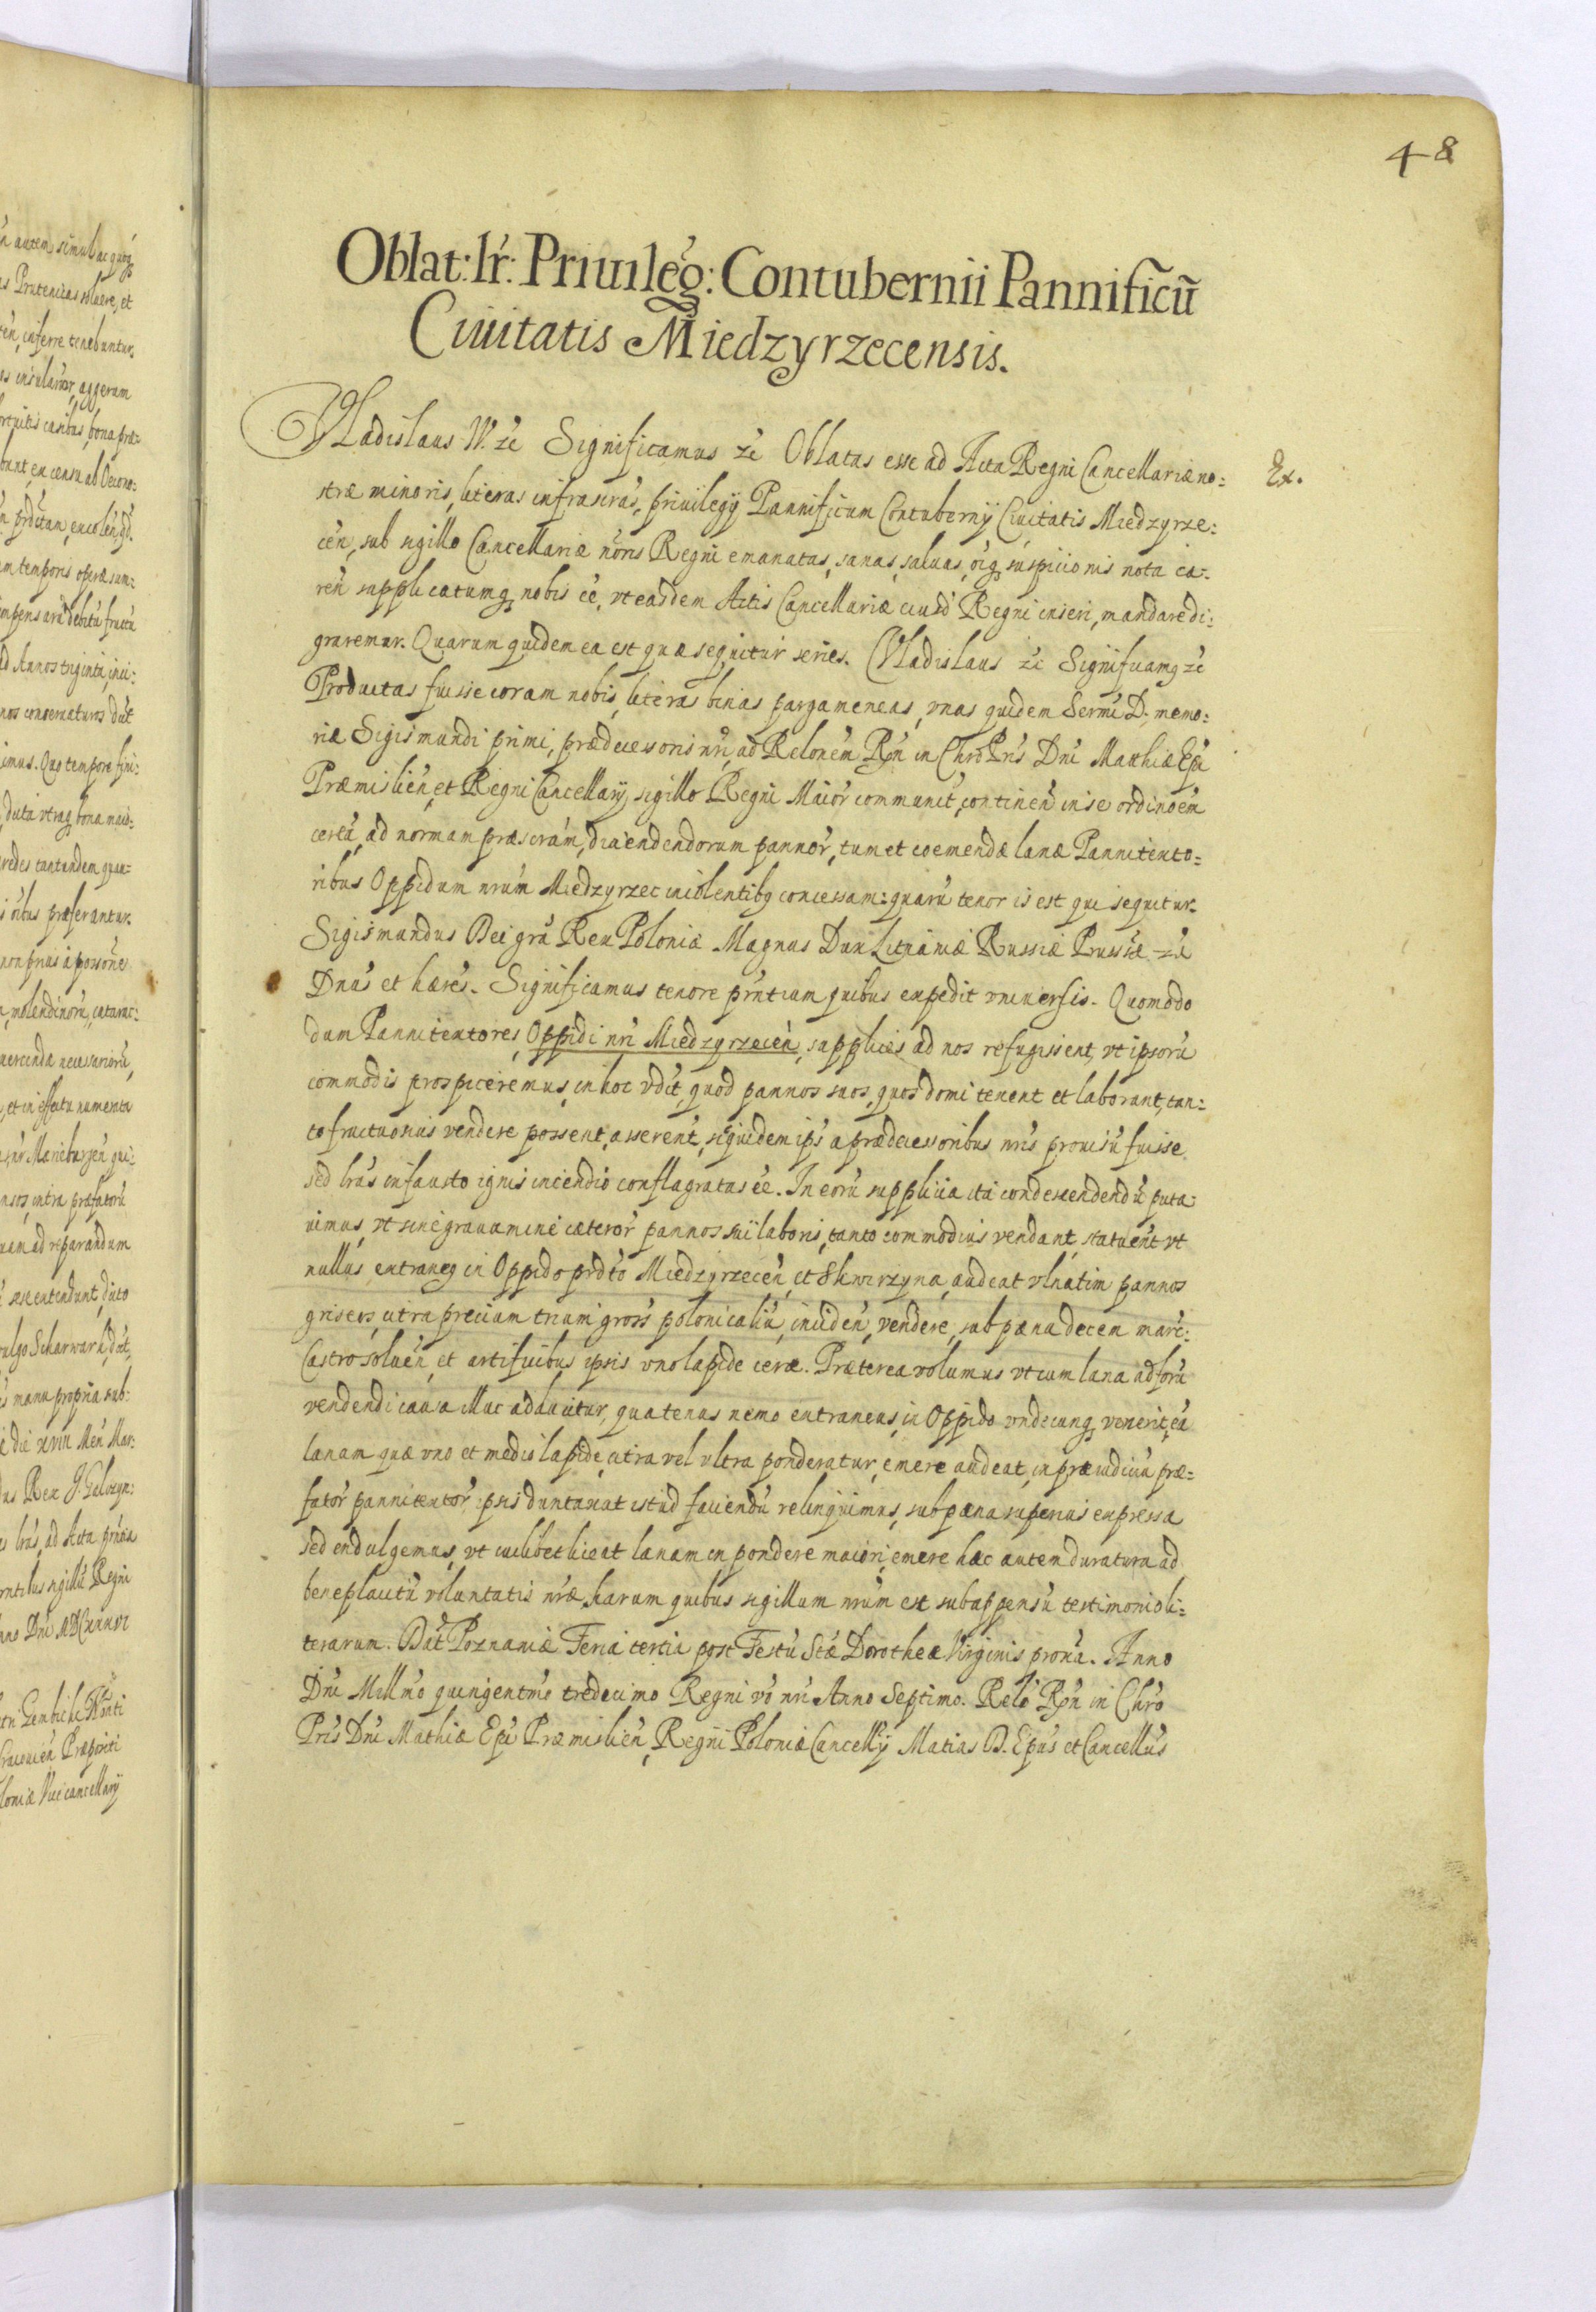 48
Oblat: lr̃: Priuileg̃: Contubernii Pannificũ
Ciuitatis Miedzyrzecensis.
Vladislaus IV. &c Significamus &c Oblatas esse ad Acta Regni Cancellariæ no:
Ex.
stræ minoris, literas infrascras, priuilegij Pannificum Contubernij Ciuitatis Miedzyrze:
cen, sub sigillo Cancellariæ nr̃is Regni emanatas, sanas, saluas, oiq suspicionis nota ca:
ren supplicatumq nobis ee, vt easdem Actis Cancellariæ eiusd Regni inseri, mandare di:
graremur. Quarum quidem ea est quæ sequitur series. Vladislaus &c Significamq &c
Productas fuisse coram nobis, literas binas pargameneas, vnas quidem Sermi D. memo:
riæ Sigismundi primi, prædecessoris nri, ad Relonem Rñ in Chro Pris Dni Matthiæ Epi
Præmislien, et Regni Cancellarij, sigillo Regni Maior communit, continen in se ordinoen
certã, ad normam præscram, diuendendorum pannor, tum et coemendæ lanæ Pannitexto:
ribus Oppidum nrum Miedzyrzec incolentibq concessam: quarũ tenor is est qui sequitur.
Sigismundus Dei gra Rex Poloniæ Magnus Dux Lithaniæ Russiæ Prussiæ &c
Dnus et hæres. Significamus tenore pntium quibus expedit vniuersis. Quomodo
dum Pannitextores, Oppidi nri Miedzyrzecen, supplices ad nos refugissent, vt ipsorũ
commodis prospiceremus, in hoc vdct, quod pannos suos, quos domi tenent et laborant, tan:
to fructuosius vendere possent, asserent, siquidem ips a prædecessoribus nris prouisũ fuisse
sed lras infausto ignis incendio conflagratas ee. In eorũ supplicia ita condescendendũ puta:
uimus, vt sine grauamine cæteror pannos sui laboris, tanto commodius vendant, statuent vt
nullus extraneq in Oppido prdto Miedzyrzecen, et Skwirzyna, audeat vlnatim pannos
griseos, citra precium trium gross polonicaliũ, inciden, vendere, sub pæna decem marc:
Castro soluen, et artificibus ipsis vno lapide ceræ. Præterea volumus vt cum lana ad forũ
vendendi causa illuc adducitur, quatenus nemo extraneus, in Oppido vndecunq venerit, eã
lanam quæ vno et medio lapide, citra vel vltra ponderatur, emere audeat, in præiudiciũ præ:
fator pannitextor, ipsis duntaxat istud faciendũ relinquimus, sub pæna superius expressa
sed indulgemus, vt cuilibet liceat lanam in pondere maiori, emere hæc autem duratura ad
beneplacitũ voluntatis nræ, harum quibus sigillum nrum est subappensũ testimonio li:
terarum. Dat Poznaniæ Feria tertia post Festũ Stæ Dorotheæ Virginis prona. Anno
Dni Millmo quingentmo tredecimo Regni vo nri Anno Septimo. Relo Rñ in Chro
Pris Dni Mathiæ Epi Præmislien, Regni Poloniæ Cancellij Matias D. Epus et Cancellus